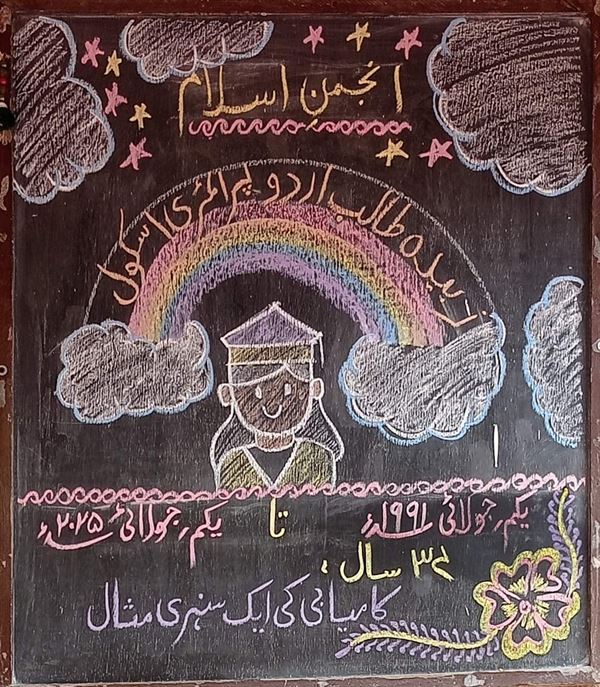 انجمنِ اسلام
زبیدہ طالب اردو پرائمری اسکول
یکم؍ جولائی ۱۹۹۱ء تا یکم؍ جولائی ۲۰۲۵ء
۳۴ سال ،
کامیابی کی ایک سنہری مثال